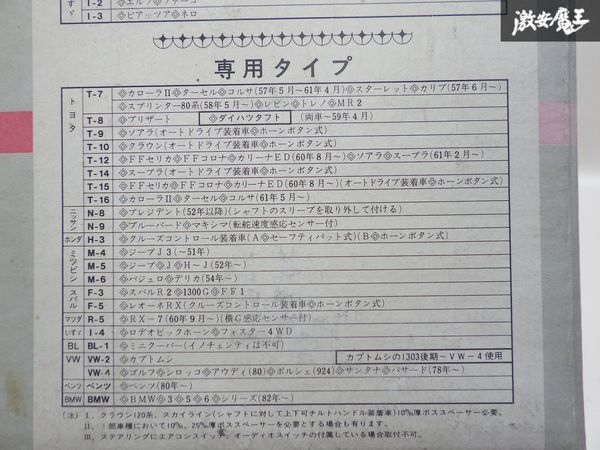 激安魔王
いすゞ I-2 ◇エルフ◇ファーゴ
I-3 ◇ピアッツア◇ネロ
専用タイプ
トヨタ T-7 ◇カローラⅡ◇ターセル◇コルサ(57年5月～61年4月)◇スターレット◇カリブ(57年6月～)
◇スプリンター80系(58年5月～)◇レビン◇トレノ◇MR2
T-8 ◇ブリザード ◇ダイハツタフト (両車～59年4月)
T-9 ◇ソアラ(オートドライブ装着車◇ホーンボタン式)
T-10 ◇クラウン(オートドライブ装着車◇ホーンボタン式)
T-12 ◇FFセリカ◇FFコロナ◇カリーナED(60年8月～)◇ソアラ◇スープラ(61年2月～)
T-14 ◇スープラ(オートドライブ装着車◇ホーンボタン式)
T-15 ◇FFセリカ◇FFコロナ◇カリーナED(60年8月～)(オートドライブ装着車◇ホーンボタン式)
T-16 ◇カローラⅡ◇ターセル◇コルサ(61年5月～)
ニッサン N-8 ◇プレジデント(52年以降)(シャフトのスリーブを取り外して付ける)
N-9 ◇ブルーバード◇マキシマ(転舵速度感応センサー付)
ホンダ H-3 ◇クルーズコントロール装着車(A◇セーフティパット式)(B◇ホーンボタン式)
ミツビシ M-4 ◇ジープJ3(～51年)
M-5 ◇ジープ◇J◇H～J(52年～)
M-6 ◇パジェロ◇デリカ(54年～)
スバル F-3 ◇スバルR2◇1300G◇FF1
F-5 ◇レオーネRX(クルーズコントロール装着車◇ホーンボタン式)
マツダ R-5 ◇RX-7(60年9月～)(横G感応センサー付)
いすゞ I-4 ◇ロデオビックホーン◇フォスター4WD
BL BL-1 ◇ミニクーパー(イノチェンティは不可)
VW VW-2 ◇カブトムシ カブトムシの1303後期～VW-4使用
VW-4 ◇ゴルフ◇シロッコ◇アウディ(80)◇ポルシェ(924)◇サンタナ◇パサード(78年～)
ベンツ ベンツ ◇ベンツ(80年～)
BMW BMW ◇BMW◇3◇5◇6◇シリーズ(82年～)
(注) Ⅰ、クラウン120系、スカイライン(シャフトに対して上下可チルトハンドル装着車)10%厚ボススペーサー必要。
Ⅱ、1部車種において10%、25%厚ボススペーサーを必要とする場合も有ります。
Ⅲ、ステアリングにエアコンスイッチ、オーディオスイッチの付属している場合取付不可。